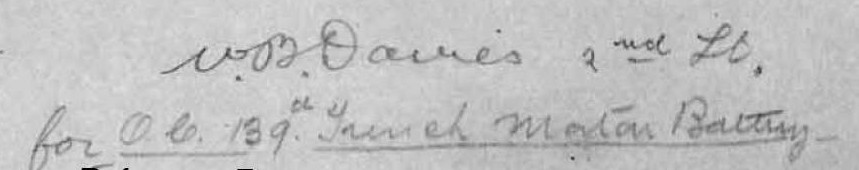 W.B. Davies 2nd Lt.
for O.C. 139th Trench Mortar Battery